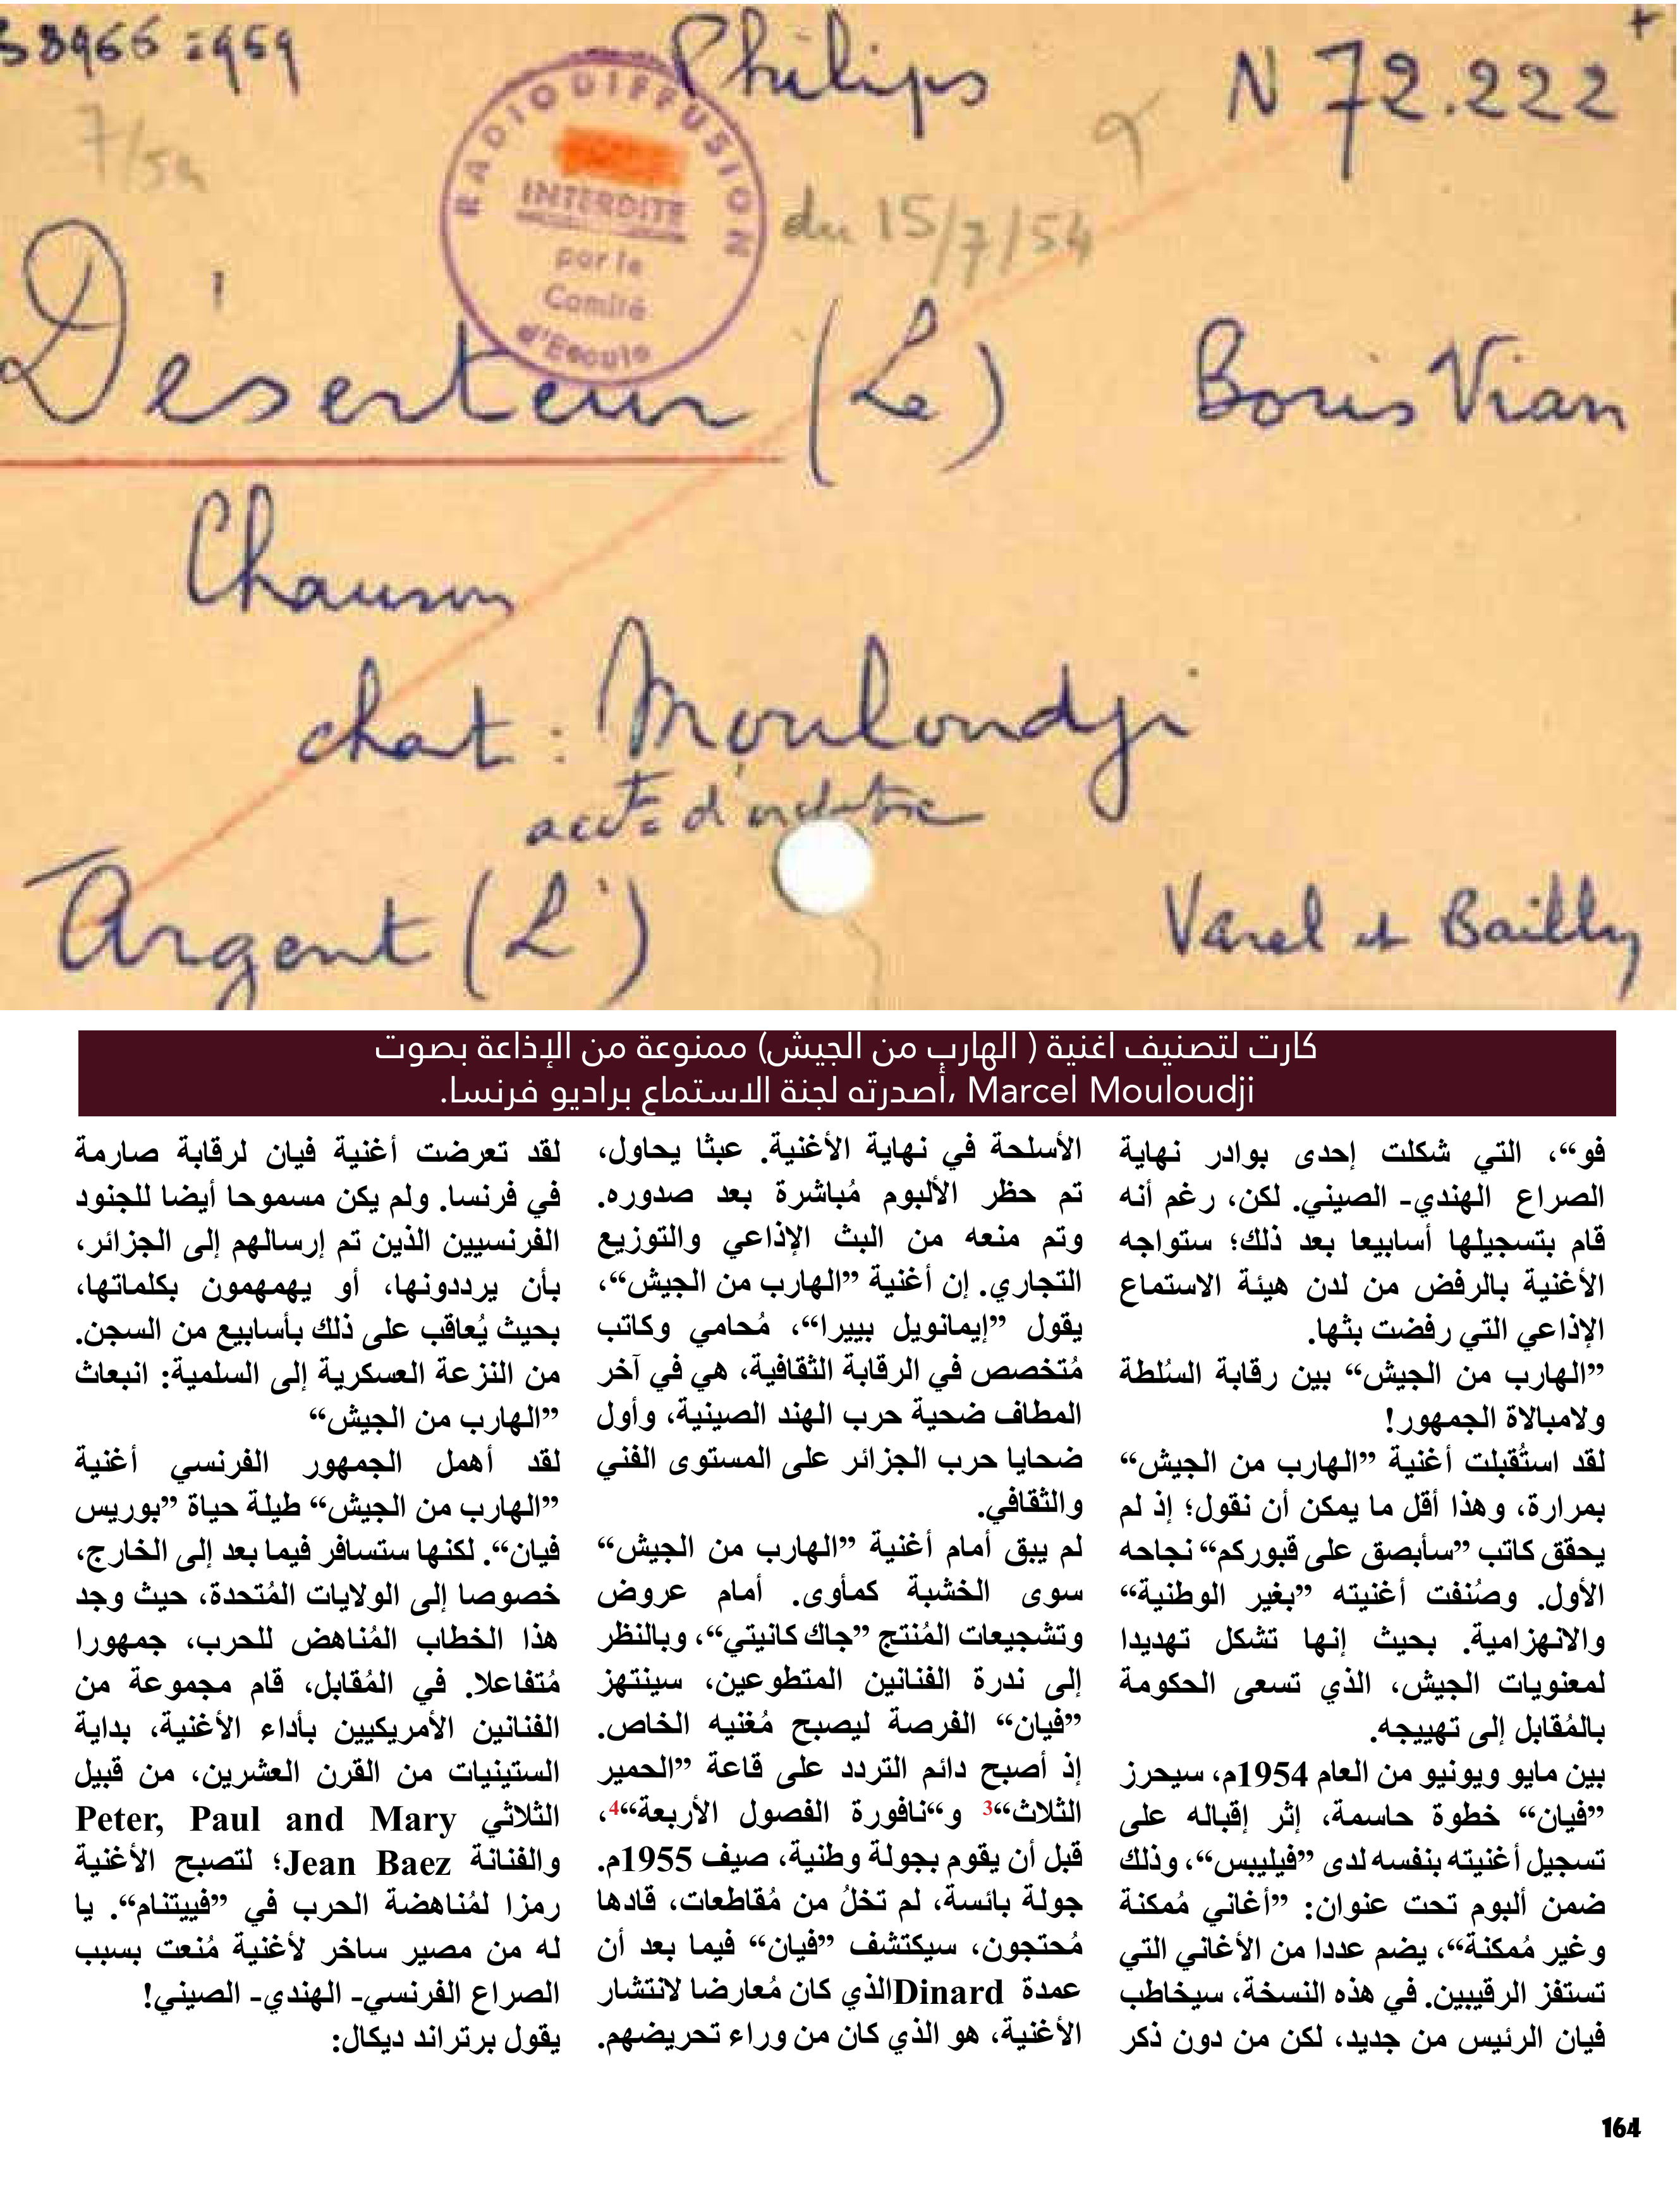 38966 = 959
Philips
N 72.222
+
7/54
RADIODIFFUSION
INTERDITE
par le
Comité
d'Ecoute
du 15/7/54
Déserteur (Le)
Boris Vian
Chanson
chat : Mouloudji
acct d'orchestre
Argent (L')
Varel et Bailly
كارت لتصنيف اغنية ( الهارب من الجيش) ممنوعة من الإذاعة بصوت
Marcel Mouloudji ،أصدرته لجنة الاستماع براديو فرنسا.
فو“، التي شكلت إحدى بوادر نهاية
الصراع الهندي- الصيني. لكن، رغم أنه
قام بتسجيلها أسابيعا بعد ذلك؛ ستواجه
الأغنية بالرفض من لدن هيئة الاستماع
الإذاعي التي رفضت بثها.
”الهارب من الجيش“ بين رقابة السُلطة
ولامبالاة الجمهور!
لقد استُقبلت أغنية ”الهارب من الجيش“
بمرارة، وهذا أقل ما يمكن أن نقول؛ إذ لم
يحقق كاتب ”سأبصق على قبوركم“ نجاحه
الأول. وصُنفت أغنيته ”بغير الوطنية“
والانهزامية. بحيث إنها تشكل تهديدا
لمعنويات الجيش، الذي تسعى الحكومة
بالمُقابل إلى تهييجه.
بين مايو ويونيو من العام 1954م، سيحرز
”فيان“ خطوة حاسمة، إثر إقباله على
تسجيل أغنيته بنفسه لدى ”فيليبس“، وذلك
ضمن ألبوم تحت عنوان: ”أغاني مُمكنة
وغير مُمكنة“، يضم عددا من الأغاني التي
تستفز الرقيبين. في هذه النسخة، سيخاطب
فيان الرئيس من جديد، لكن من دون ذكر
الأسلحة في نهاية الأغنية. عبثا يحاول،
تم حظر الألبوم مُباشرة بعد صدوره.
وتم منعه من البث الإذاعي والتوزيع
التجاري. إن أغنية ”الهارب من الجيش“،
يقول ”إيمانويل بييرا“، مُحامي وكاتب
مُتخصص في الرقابة الثقافية، هي في آخر
المطاف ضحية حرب الهند الصينية، وأول
ضحايا حرب الجزائر على المستوى الفني
والثقافي.
لم يبق أمام أغنية ”الهارب من الجيش“
سوى الخشبة كمأوى. أمام عروض
وتشجيعات المُنتج ”جاك كانيتي“، وبالنظر
إلى ندرة الفنانين المتطوعين، سينتهز
”فيان“ الفرصة ليصبح مُغنيه الخاص.
إذ أصبح دائم التردد على قاعة ”الحمير
الثلاث“3 و“نافورة الفصول الأربعة“4،
قبل أن يقوم بجولة وطنية، صيف 1955م.
جولة بائسة، لم تخلُ من مُقاطعات، قادها
مُحتجون، سيكتشف ”فيان“ فيما بعد أن
عمدة Dinardالذي كان مُعارضا لانتشار
الأغنية، هو الذي كان من وراء تحريضهم.
لقد تعرضت أغنية فيان لرقابة صارمة
في فرنسا. ولم يكن مسموحا أيضا للجنود
الفرنسيين الذين تم إرسالهم إلى الجزائر،
بأن يرددونها، أو يهمهمون بكلماتها،
بحيث يُعاقب على ذلك بأسابيع من السجن.
من النزعة العسكرية إلى السلمية: انبعاث
”الهارب من الجيش“
لقد أهمل الجمهور الفرنسي أغنية
”الهارب من الجيش“ طيلة حياة ”بوريس
فيان“. لكنها ستسافر فيما بعد إلى الخارج،
خصوصا إلى الولايات المُتحدة، حيث وجد
هذا الخطاب المُناهض للحرب، جمهورا
مُتفاعلا. في المُقابل، قام مجموعة من
الفنانين الأمريكيين بأداء الأغنية، بداية
الستينيات من القرن العشرين، من قبيل
الثلاثي Peter, Paul and Mary
والفنانة Jean Baez؛ لتصبح الأغنية
رمزا لمُناهضة الحرب في ”فييتنام“. يا
له من مصير ساخر لأغنية مُنعت بسبب
الصراع الفرنسي- الهندي- الصيني!
يقول برتراند ديكال:
164